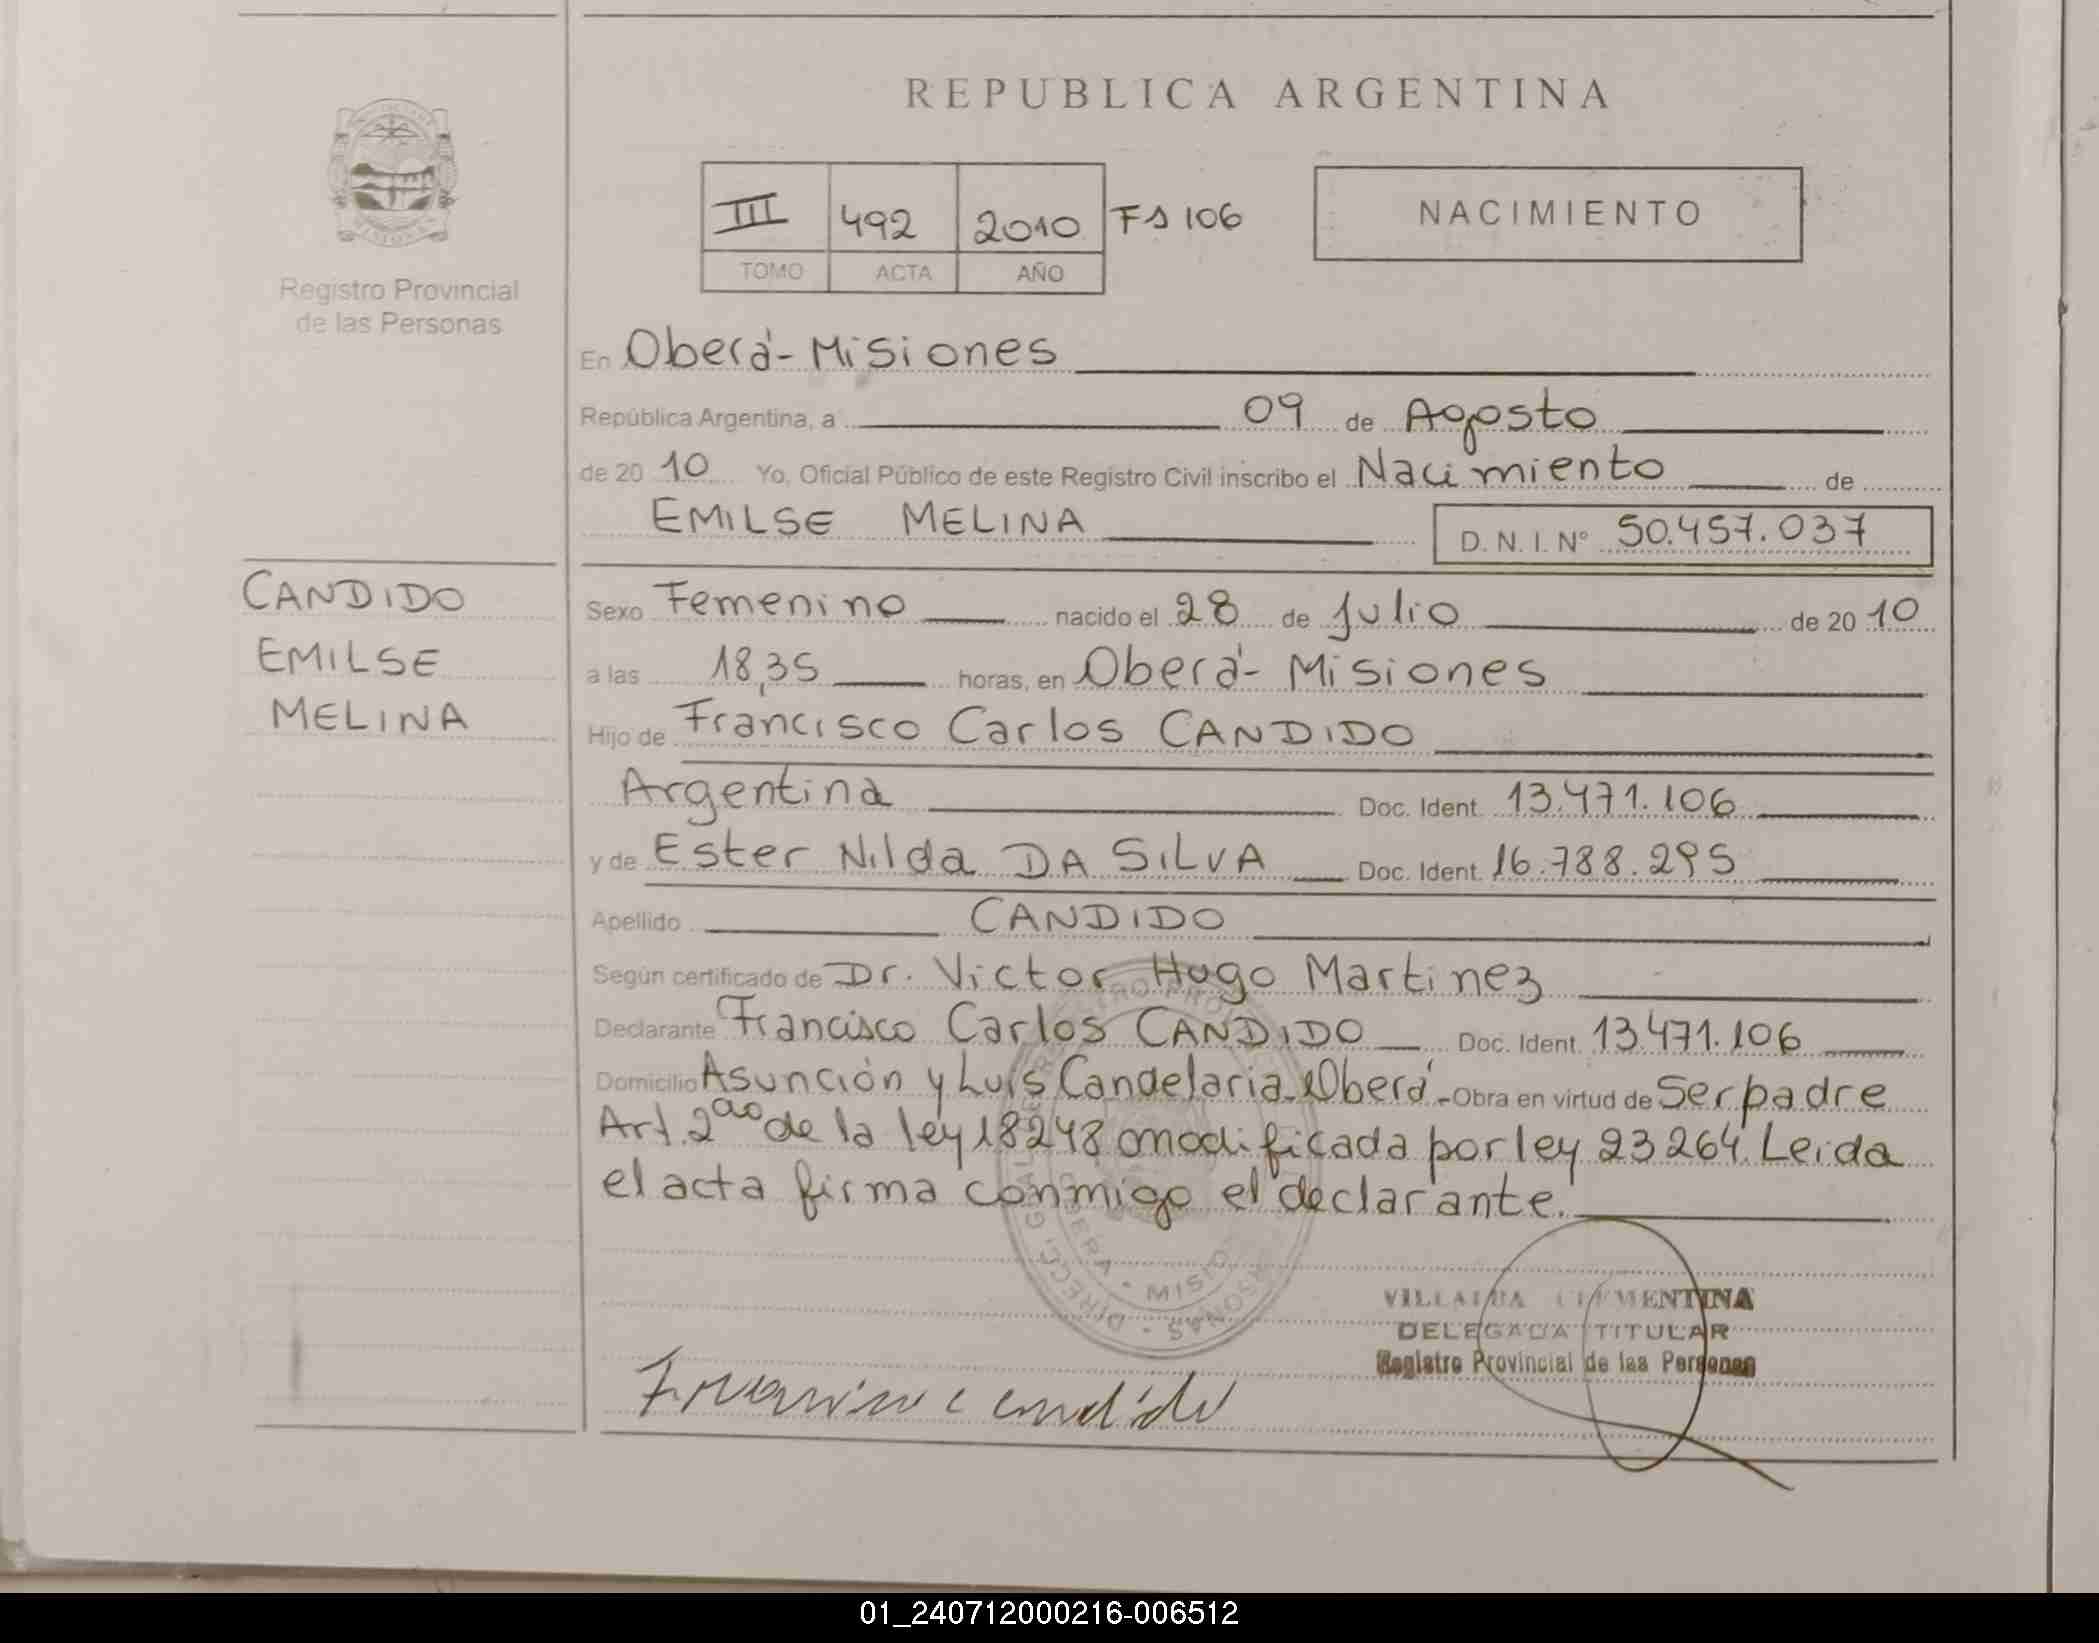 REPUBLICA ARGENTINA
III 492 2010 Fs 106
TOMO ACTA AÑO
NACIMIENTO
Registro Provincial
de las Personas
En Oberá - Misiones
República Argentina, a 09 de Agosto
de 20 10 Yo, Oficial Público de este Registro Civil inscribo el Nacimiento de
EMILSE MELINA D. N. I. N° 50.457.037
CANDIDO
EMILSE
MELINA
Sexo Femenino nacido el 28 de Julio de 20 10
a las 18,35 horas, en Oberá - Misiones
Hijo de Francisco Carlos CANDIDO
Argentina Doc. Ident. 13.471.106
y de Ester Nilda DA SILVA Doc. Ident. 16.788.295
Apellido CANDIDO
Según certificado de Dr. Victor Hugo Martinez
Declarante Francisco Carlos CANDIDO Doc. Ident. 13.471.106
Domicilio Asunción y Luis Candelaria - Oberá - Obra en virtud de Ser padre
Art. 2do de la ley 18248 modificada por ley 23264. Leida
el acta firma conmigo el declarante.
VILLALBA CLEMENTINA
DELEGADA TITULAR
Registro Provincial de las Personas
Francisco C candido
01_240712000216-006512